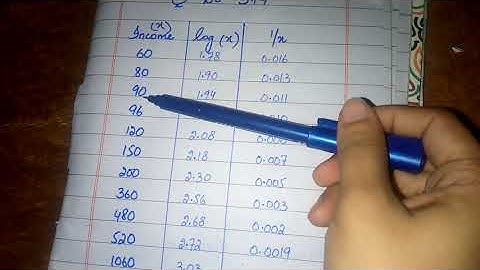 (x)
Income log(x) 1/x
60 1.78 0.016
80 1.90 0.013
90 1.94 0.011
96
120 2.08
150 2.18 0.007
200 2.30 0.005
360 2.56 0.003
480 2.68 0.002
520 2.72 0.0019
1060 3.03